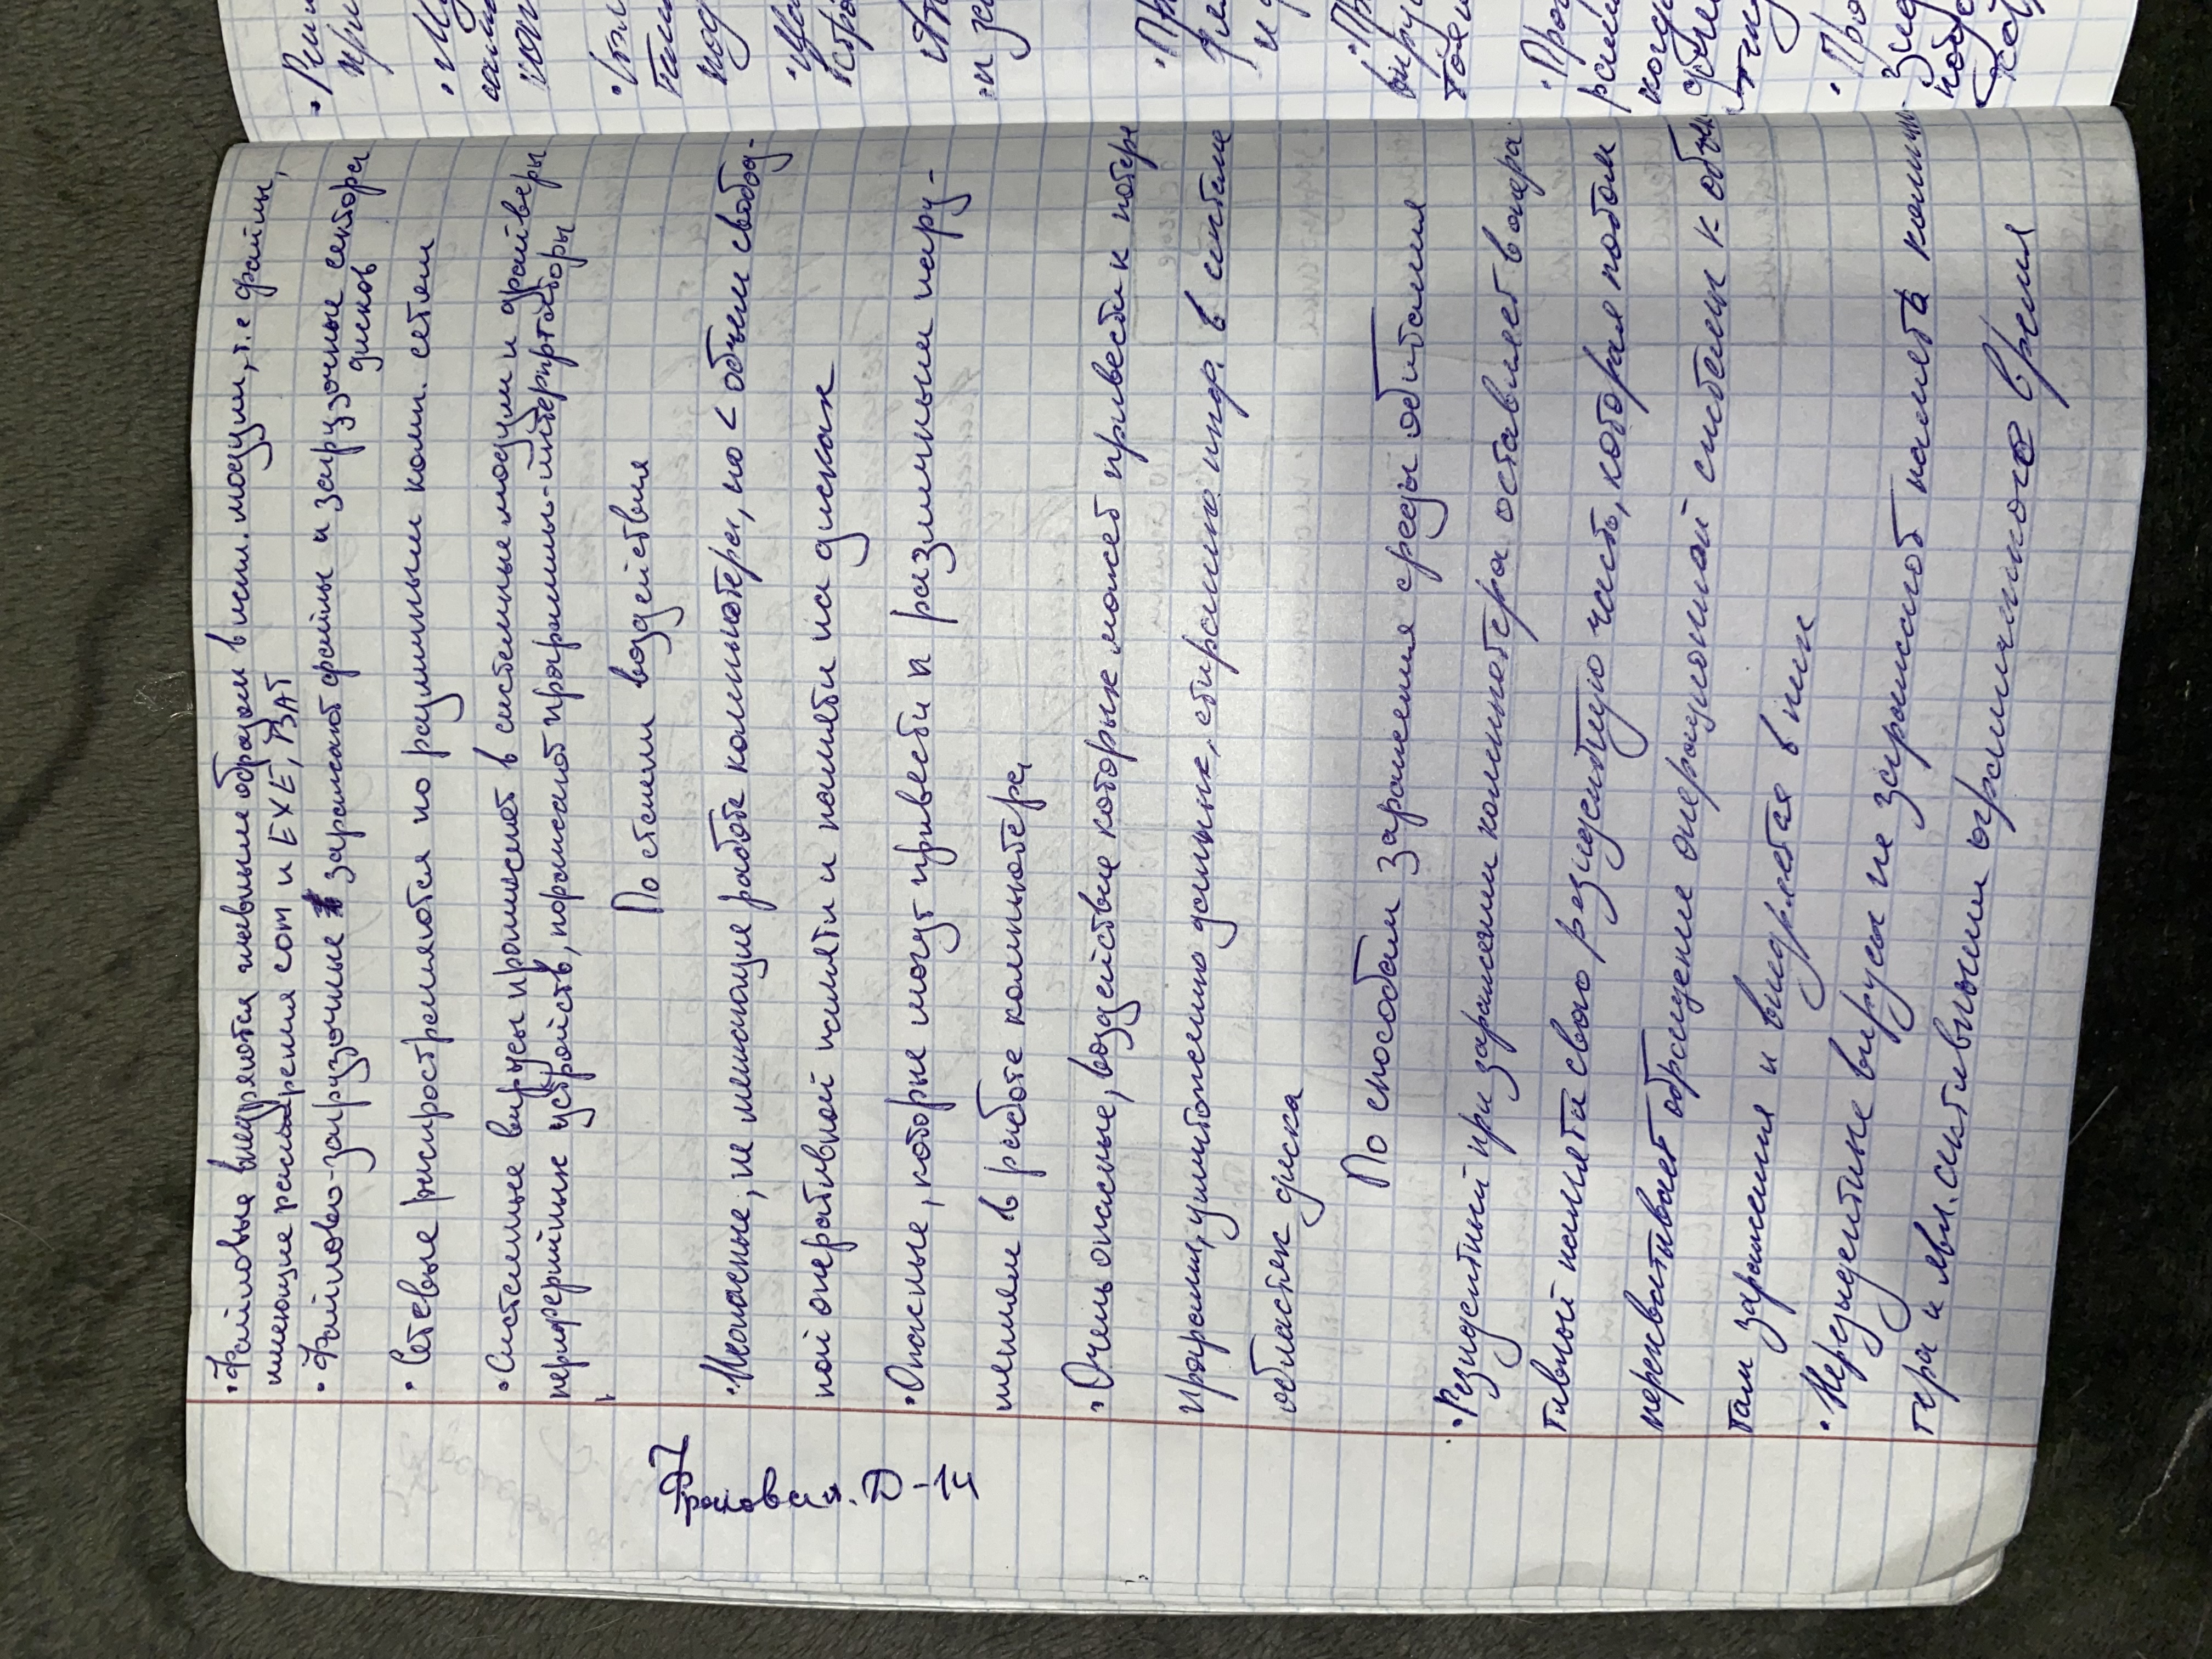 • Файловые внедряются главным образом в исп. модули, т.е файлы,
имеющие расширения com и EXE, BAT
• Файлово-загрузочные заражают файлы и загрузочные сектора
дисков
• Сетевые распространяются по различным комп. сетям
• Системные вирусы проникают в системные модули и драйверы
переферийных устройств, поражают программы-интерпретаторы
По степени воздействия
• Неопасные, не мешающие работе компьютера, но < объем свобод-
ной оперативной памяти и памяти на дисках
• Опасные, которые могут привести к различным нару-
шениям в работе компьютера
• Очень опасные, воздействие которых может привести к потере
программ, уничтожению данных, стиранию инф. в системе
областях диска
По способам заражения среды обитания
• Резидентный при заражении компьютера оставляет в опера
тивной памяти свою резидентную часть, которая потом
перехватывает обращение операционной системы к объек
там заражения и внедряется в них
• Нерезидентные вирусы не заражают память компью
тера и явл. активными ограниченное время
Фролова Д-14